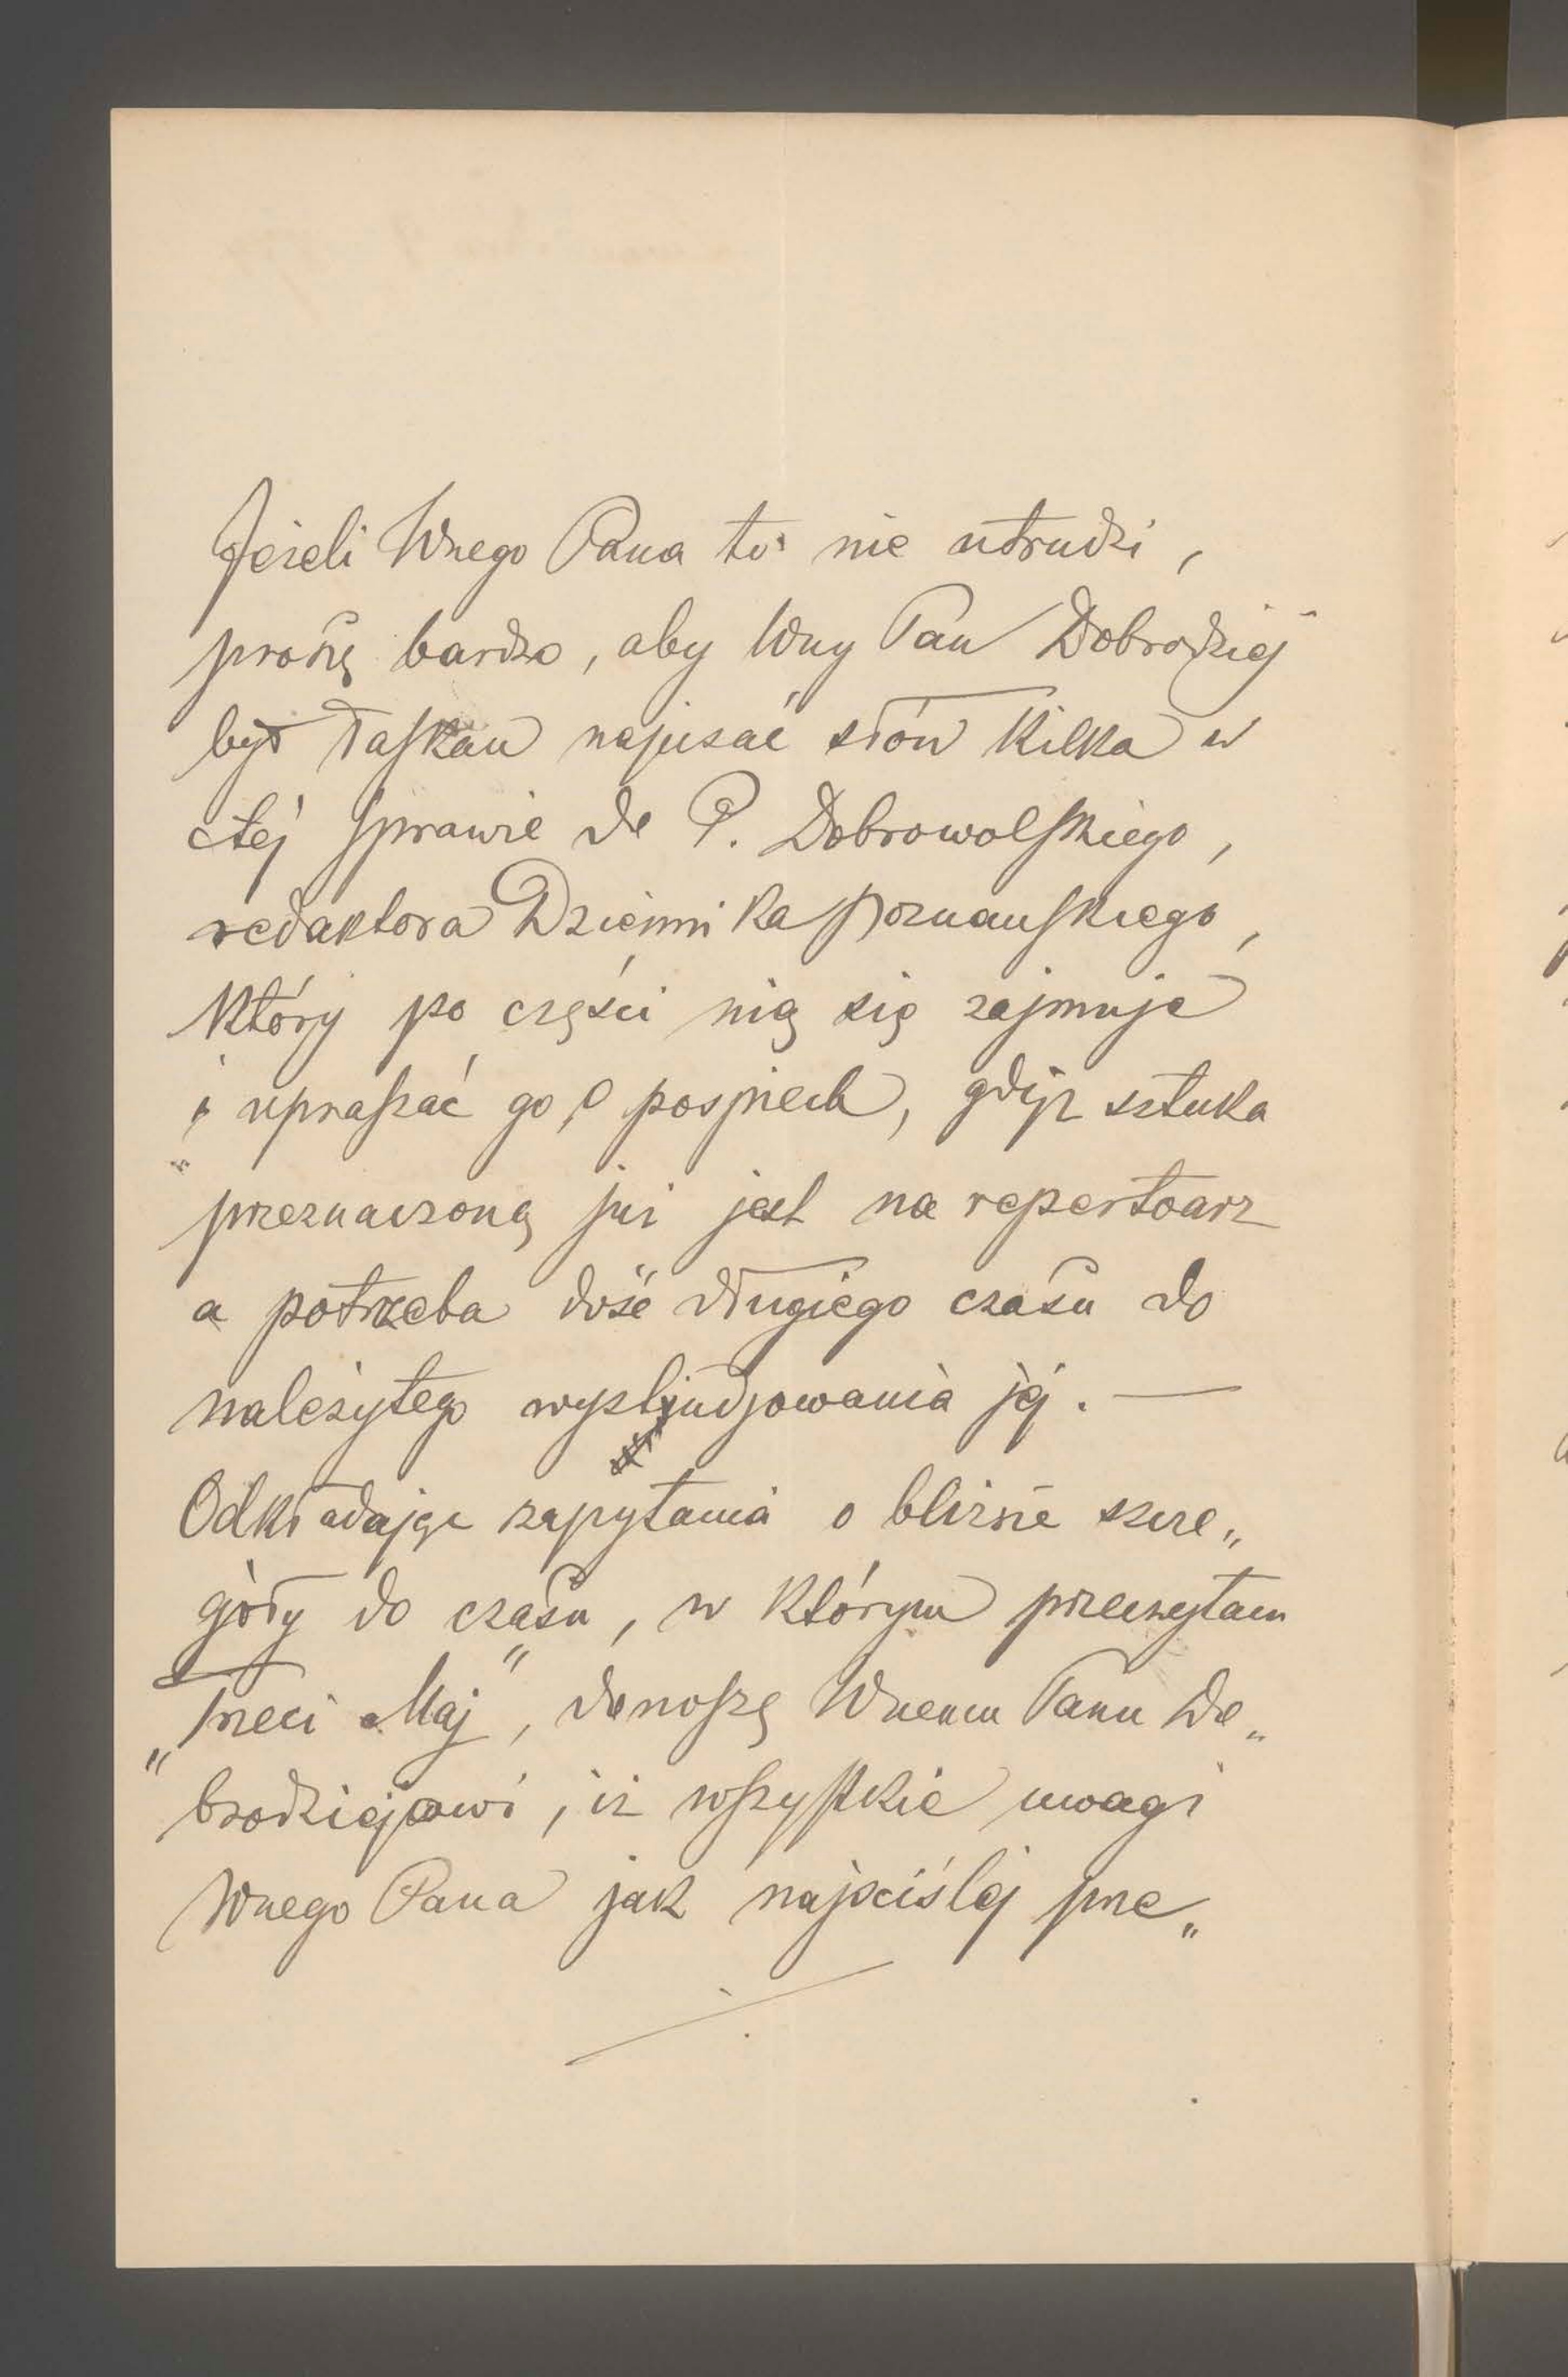 Jeżeli Wnego Pana to nie utrudzi,
proszę bardzo, aby Wny Pan Dobrodziej
był łaskaw napisać słów kilka w
tej sprawie do P. Dobrowolskiego,
redaktora Dziennika poznańskiego,
który po części nią się zajmuje
i upraszać go o pospiech, gdyż sztuka
przeznaczoną już jest na repertoarz
a potrzeba dość długiego czasu do
należytego wystudjowania jéj. —
Odkładając zapytania o bliższe szcze„
góły do czasu, w którym przeczytam
„Trzeci Maj”, donoszę Wnemu Panu Do„
brodziejowi, iż wszystkie uwagi
Wnego Pana jak najściślej prze„